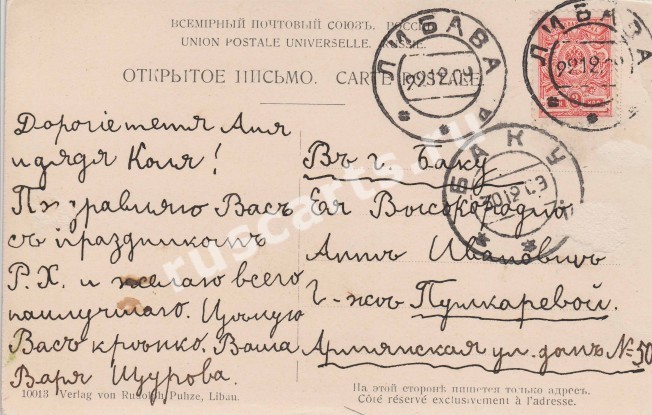 ВСЕМІРНЫЙ ПОЧТОВЫЙ СОЮЗЪ. РОССІЯ.
UNION POSTALE UNIVERSELLE. RUSSIE.
ОТКРЫТОЕ ПИСЬМО. CARTE POSTALE.
ЛИБАВА
22 12 09
ЛИБАВА
БАКУ
30 12 09
Дорогіе тетя Аня
и дядя Коля!
Поздравляю Васъ
съ праздникомъ
Р. Х. и желаю всего
наилучшаго. Цѣлую
Васъ крѣпко. Ваша
Варя Щурова.
Въ г. Баку
Ея Высокородію
Аннѣ Ивановнѣ
Г-жѣ Пушкаревой.
Армянская ул. домъ № 50
10013 Verlag von Rudolph Puhze, Libau.
На этой сторонѣ пишется только адресъ.
Côté réservé exclusivement à l'adresse.
ruscarts.ru